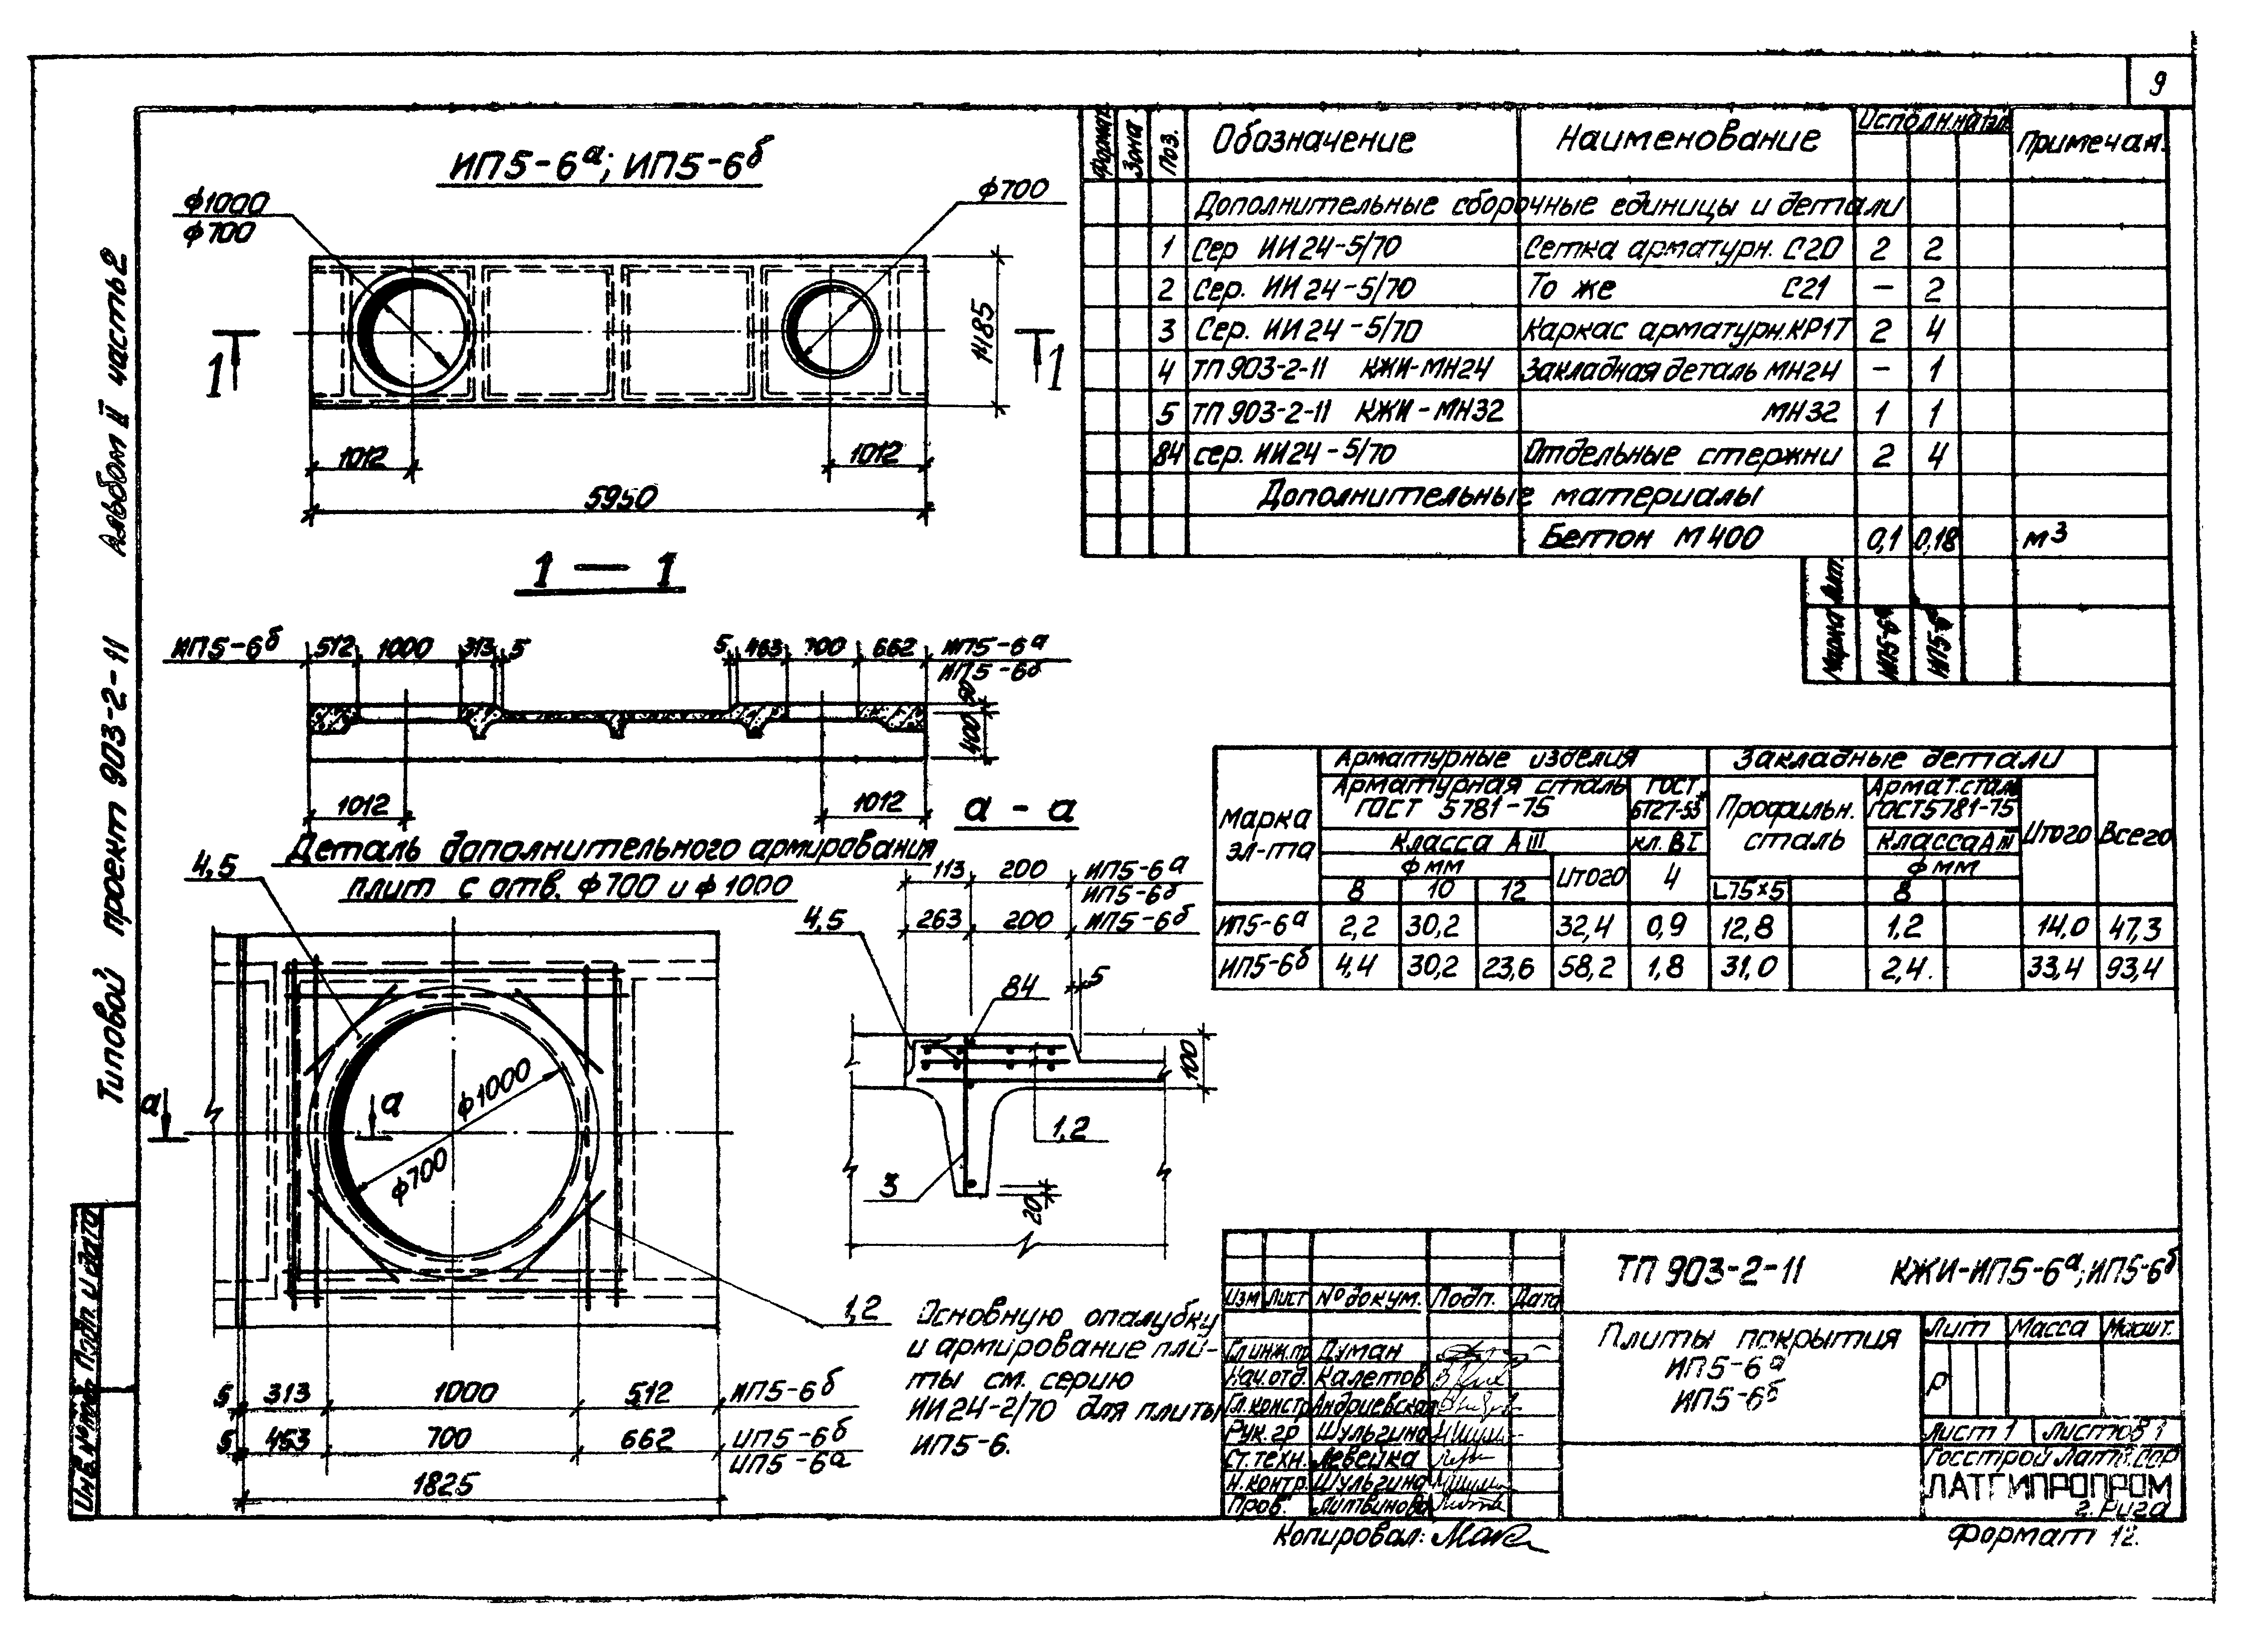 9
Типовой проект 903-2-11 Альбом II часть 2
Инв.№ подл. Подп. и дата
ИП5-6а; ИП5-6б
ф1000
ф700
ф700
1185
1 1
1012 1012
5950
1 — 1
ИП5-6б 512 1000 313 5 5 463 700 662 ИП5-6а
ИП5-6б
400
1012 1012
Деталь дополнительного армирования
плит с отв. ф700 и ф1000
4,5
а а
ф1000
ф700
1,2
5 313 1000 512 ИП5-6б
5 463 700 662 ИП5-6б
ИП5-6а
1825
а - а
113 200 ИП5-6а
ИП5-6б
263 200 ИП5-6б
4,5
84
5
100
1,2
3
20
Основную опалубку
и армирование пли-
ты см. серию
ИИ24-2/70 для плиты
ИП5-6.
Формат Зона Поз. Обозначение Наименование Исполн. на эл. Примечан.
Дополнительные сборочные единицы и детали
1 Сер ИИ24-5/70 Сетка арматурн. С20 2 2
2 Сер. ИИ24-5/70 То же С21 – 2
3 Сер. ИИ24-5/70 Каркас арматурн. КР17 2 4
4 ТП 903-2-11 КЖИ-МН24 Закладная деталь МН24 – 1
5 ТП 903-2-11 КЖИ-МН32 МН32 1 1
84 сер. ИИ24-5/70 Отдельные стержни 2 4
Дополнительные материалы
Бетон М400 0,1 0,18 м3
Лит.
Марка ИП5-6а ИП5-6б
Марка эл-та Арматурные изделия Закладные детали Всего
Арматурная сталь ГОСТ 5781-75 ГОСТ 6727-53* Профильн. сталь Армат. сталь ГОСТ 5781-75 Итого
Класса АIII кл. ВI Класса АIII
ф мм Итого 4 ф мм
8 10 12 L75×5 8
ИП5-6а 2,2 30,2 32,4 0,9 12,8 1,2 14,0 47,3
ИП5-6б 4,4 30,2 23,6 58,2 1,8 31,0 2,4 33,4 93,4
ТП 903-2-11 КЖИ-ИП5-6а; ИП5-6б
Изм Лист № докум. Подп. Дата
Гл.инж.пр Думан
Нач.отд. Калетов
Гл.констр Андриевская
Рук.гр Шульгина
Ст.техн. Левейка
Н.контр. Шульгина
Пров. Литвинова
Плиты покрытия
ИП5-6а
ИП5-6б
Лит Масса Масшт.
Р
Лист 1 Листов 1
Госстрой Латв.ССР
ЛАТГИПРОПРОМ
г. Рига
Копировал:
Формат 12.